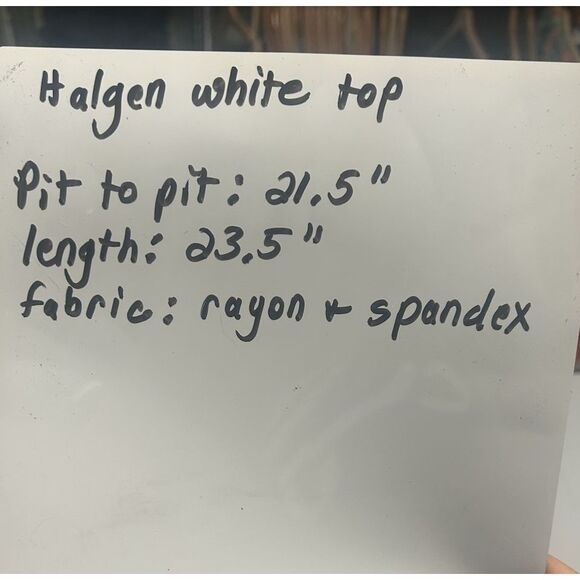 Halgen white top
Pit to pit: 21.5"
length: 23.5"
fabric: rayon + spandex